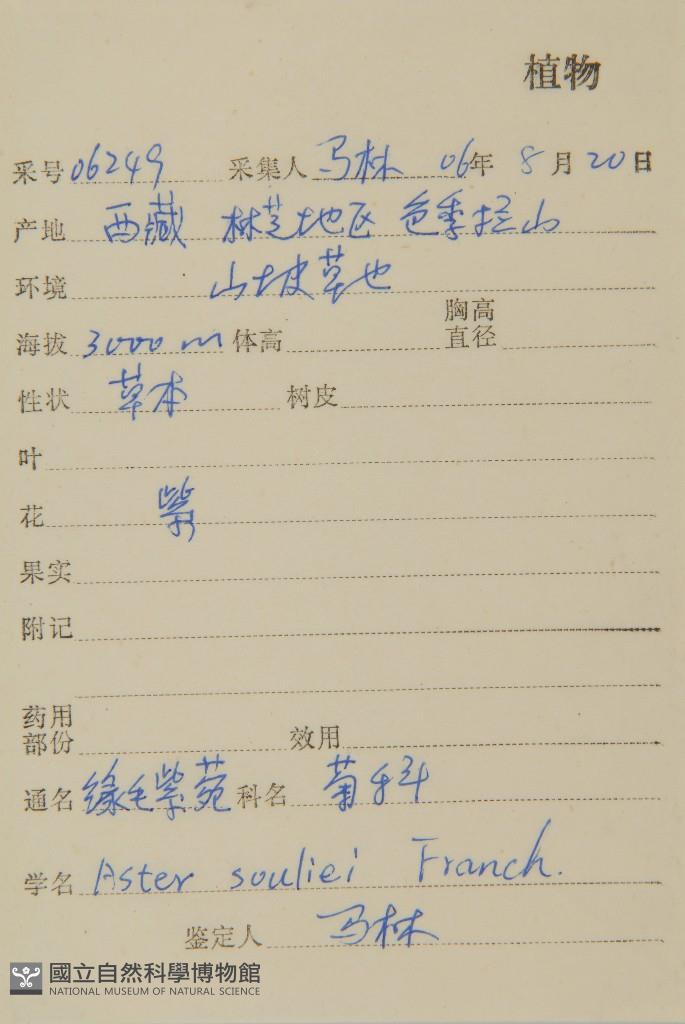 植物
采号 06249 采集人 马林 06年 8月20日
产地 西藏 林芝地区 色季拉山
环境 山坡草地
海拔 3000m 体高 胸高直径
性状 草本 树皮
叶
花 紫
果实
附记
药用部份 效用
通名 缘毛紫菀 科名 菊科
学名 Aster souliei Franch.
鉴定人 马林
國立自然科學博物館
NATIONAL MUSEUM OF NATURAL SCIENCE